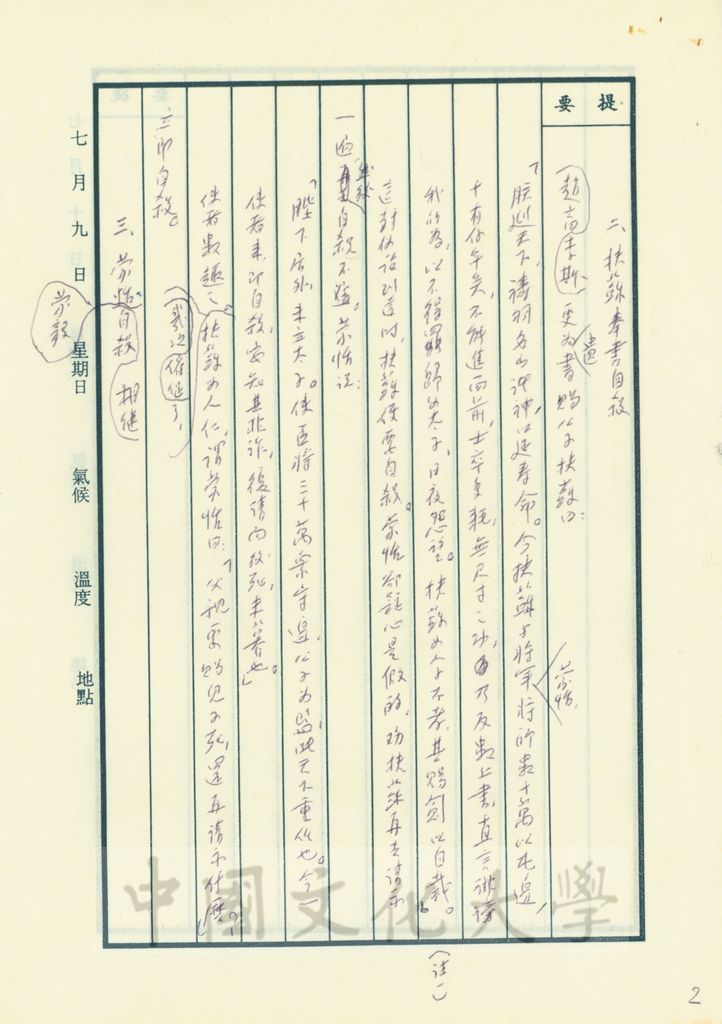 提要
二、扶蘇奉書自殺
(趙高李斯)更為書遺賜公子扶蘇曰：
「朕巡天下，禱祠名山諸神以延壽命。今扶蘇與將軍蒙恬，將師數十萬以屯邊，
十有餘年矣，不能進而前，士卒多耗，無尺寸之功，乃反數上書，直言誹謗
我所為，以不得罷歸為太子，日夜怨望。扶蘇為人子不孝，其賜劍以自裁。」(註一)
這對偽詔到達時，扶蘇便要自殺。蒙恬卻疑心是假的，勸扶蘇再去請示
一過，再自殺不遲。蒙恬說：
「陛下居外，未立太子。使臣將三十萬眾守邊，公子為監，此天下重任也。今一
使者來，即自殺，安知其非詐，復請而後死，未暮也。」
使者數趣之(幾次催促了)，扶蘇為人仁，謂蒙恬曰：「父親要賜兒子死，還再請示什麼？」
立即自殺。
三、蒙恬蒙毅相繼自殺
七月十九日 星期日 氣候 溫度 地點
中國文化大學
2